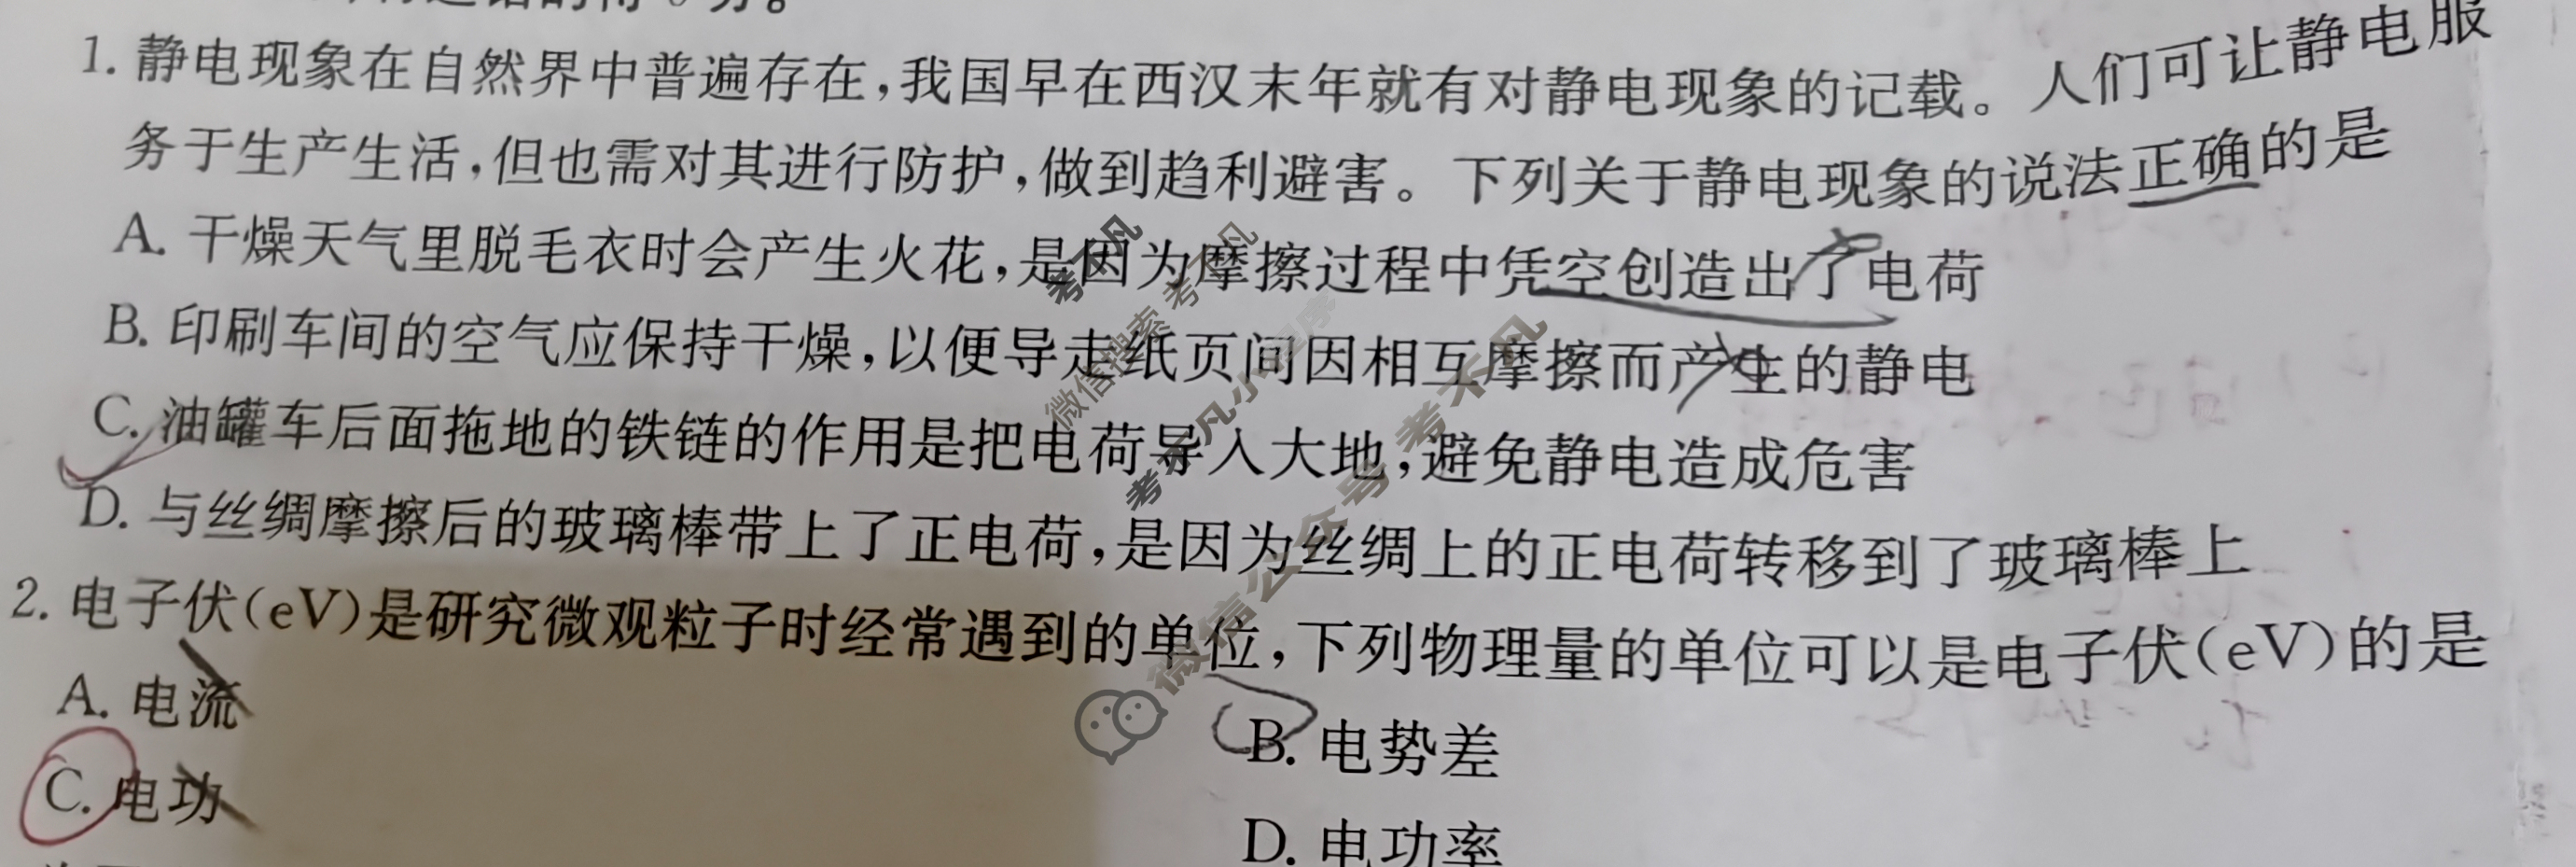 1. 静电现象在自然界中普遍存在,我国早在西汉末年就有对静电现象的记载。人们可让静电服
务于生产生活,但也需对其进行防护,做到趋利避害。下列关于静电现象的说法正确的是
A. 干燥天气里脱毛衣时会产生火花,是因为摩擦过程中凭空创造出了电荷
B. 印刷车间的空气应保持干燥,以便导走纸页间因相互摩擦而产生的静电
C. 油罐车后面拖地的铁链的作用是把电荷导入大地,避免静电造成危害
D. 与丝绸摩擦后的玻璃棒带上了正电荷,是因为丝绸上的正电荷转移到了玻璃棒上
2. 电子伏(eV)是研究微观粒子时经常遇到的单位,下列物理量的单位可以是电子伏(eV)的是
A. 电流
B. 电势差
C. 电功
D. 电功率
考不凡
微信搜索 考不凡
考不凡小程序
微信公众号 考不凡